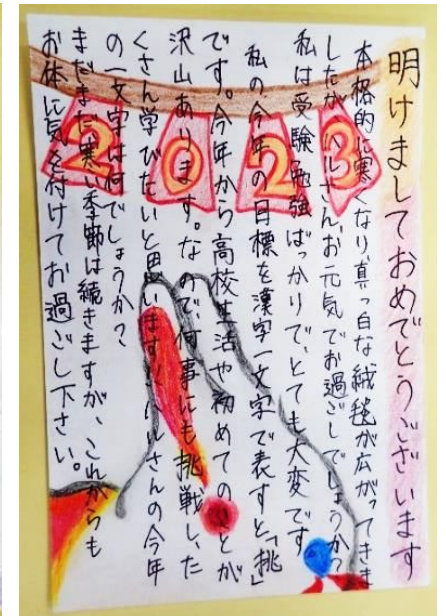 明けましておめでとうございます
本格的に寒くなり、真っ白な絨毯が広がってきま
したが、お元気でお過ごしでしょうか?
私は受験勉強ばっかりで、とても大変です
私の今年の目標を漢字一文字で表すと「挑」
です。今年から高校生活や初めてのことが
沢山あります。なので、何事にも挑戦し、た
くさん学びたいと思います さんの今年
の一文字は何でしょうか?
まだまだ寒い季節は続きますが、これからも
お体に気を付けてお過ごし下さい。
2023